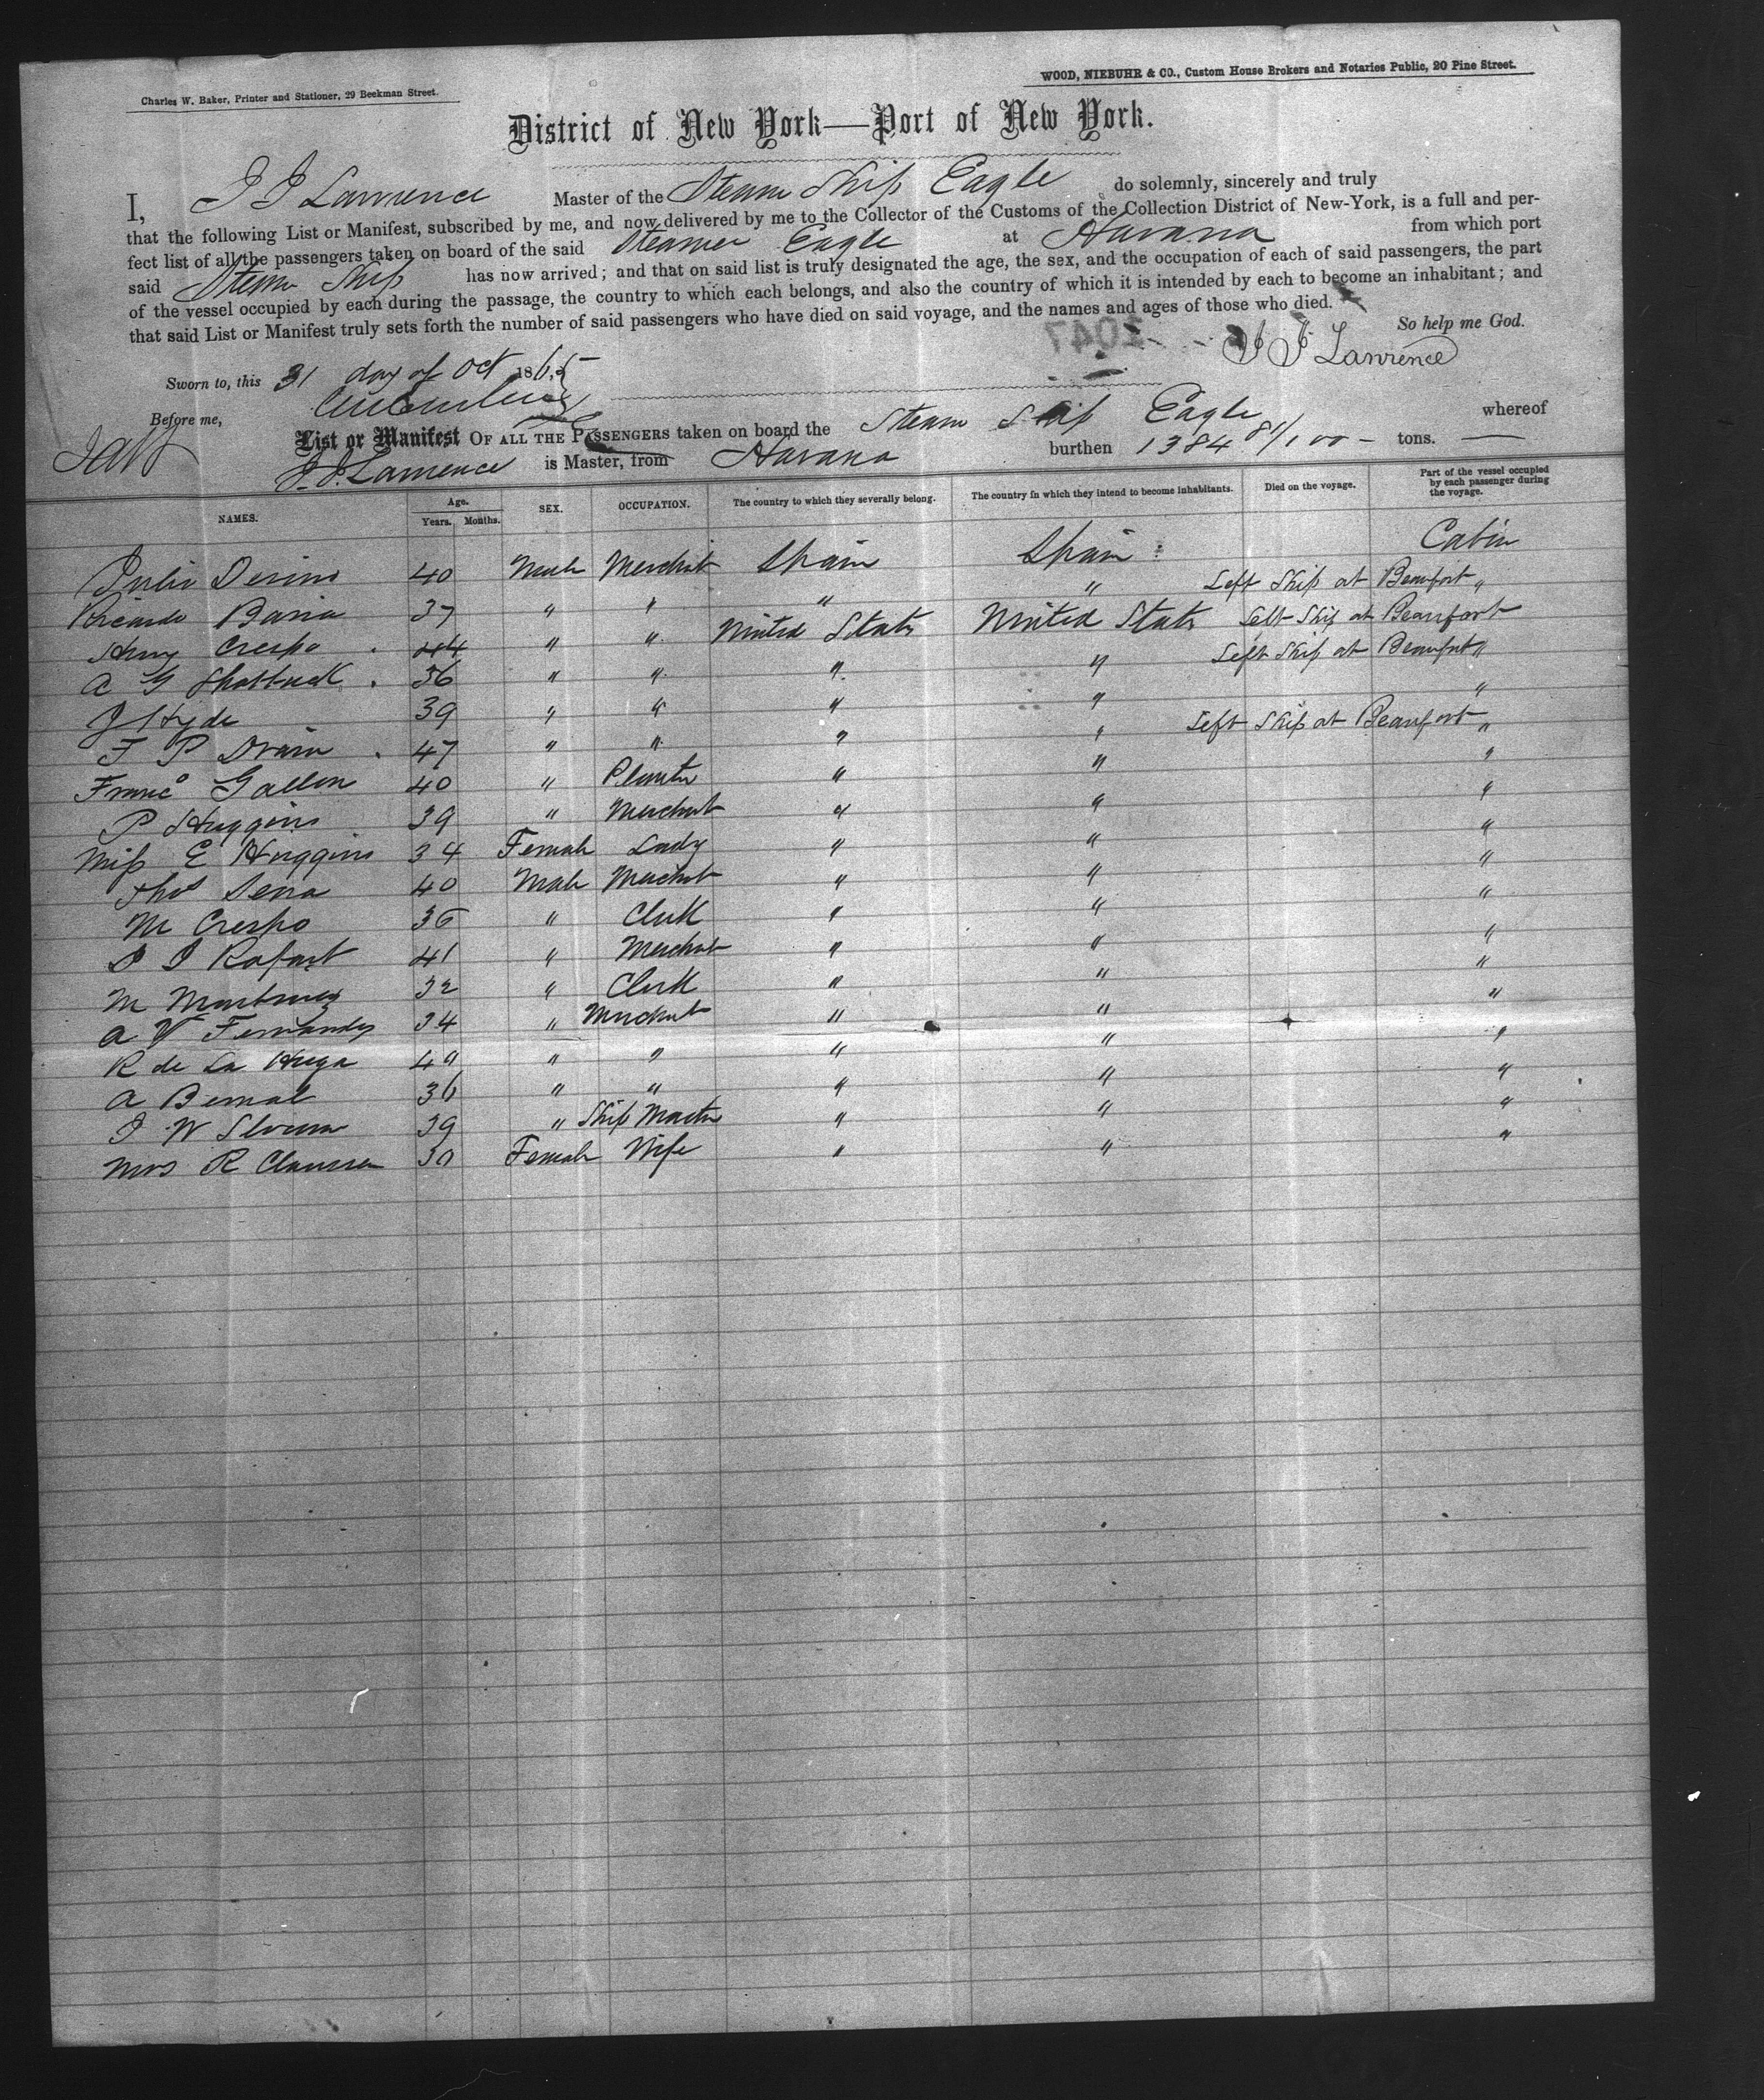 Charles W. Baker, Printer and Stationer, 29 Beekman Street.
WOOD, NIEBUHR & CO., Custom House Brokers and Notaries Public, 20 Pine Street.
District of New York—Port of New York.
I, J J Lawrence Master of the Steam Ship Eagle do solemnly, sincerely and truly
that the following List or Manifest, subscribed by me, and now delivered by me to the Collector of the Customs of the Collection District of New-York, is a full and per-
fect list of all the passengers taken on board of the said Steamer Eagle at Havana from which port
said Steam Ship has now arrived; and that on said list is truly designated the age, the sex, and the occupation of each of said passengers, the part
of the vessel occupied by each during the passage, the country to which each belongs, and also the country of which it is intended by each to become an inhabitant; and
that said List or Manifest truly sets forth the number of said passengers who have died on said voyage, and the names and ages of those who died.
So help me God.
J J Lawrence
Sworn to, this 31 day of Oct 1865
Before me,
List or Manifest OF ALL THE PASSENGERS taken on board the Steam Ship Eagle whereof
J. J. Lawrence is Master, from Havana burthen 1384 81/100 - tons.
NAMES. Age. Years. Months. SEX. OCCUPATION. The country to which they severally belong. The country in which they intend to become inhabitants. Died on the voyage. Part of the vessel occupied by each passenger during the voyage.
Julio 40 Male Merchat Spain Spain Cabin
Ricardo Baria 37 " " " " Left Ship at Beaufort "
Henry Crespo 44 " " United States United States Left Ship at Beaufort
A G Shattuck 36 " " " " Left Ship at Beaufort "
J Hyde 39 " " " " "
F P Drain 47 " " " " Left Ship at Beaufort "
Franco Gallon 40 " Planter " " "
P Huggins 39 " Merchat " " "
Miss E Huggins 34 Female Lady " " "
Thos Serra 40 Male Merchat " " "
M Crespo 36 " Clerk " " "
J J Rafart 41 " Merchat " " "
M Martinez 32 " Clerk " " "
A V Fernandez 34 " Merchat " " "
R de La 40 " " " " "
A Bernal 36 " " " " "
J W Slocum 39 " Ship Master " " "
Mrs R Claussen 30 Female Wife " " "